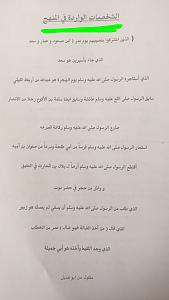 الشخصيات الواردة في المنهج
( الذين اشتركوا بنصيبهم يوم بدر ( ابن مسعود و عمار و سعد
الذي جاء بأسيرين هو سعد
الذي استأجره الرسول صلى الله عليه وسلم يوم الهجرة هو عبدالله بن أريقط الليثي
سابق الرسول صلى الله عليه وسلم عائشة وسابق أيضا سلمة بن الأكوع رجلا من الأنصار
صارع الرسول صلى الله عليه وسلم ركانة فصرعه
استعار الرسول صلى الله عليه وسلم فرسا من أبي طلحة ودرعا من صفوان بن أمية
أقطع الرسول صلى الله عليه وسلم أرضا لـ بلال بن الحارث في العقيق
و وائل بن حجر في حضر موت
الذي طلب من الرسول صلى الله عليه وسلم أن يسقي ثم يمسك هو زبير
الذي قال ( من أخذ الضالة فهو ضال ) عمر بن الخطاب
الذي وجد اللقيط وأخذه هو أبي جميلة
منقول من أبو